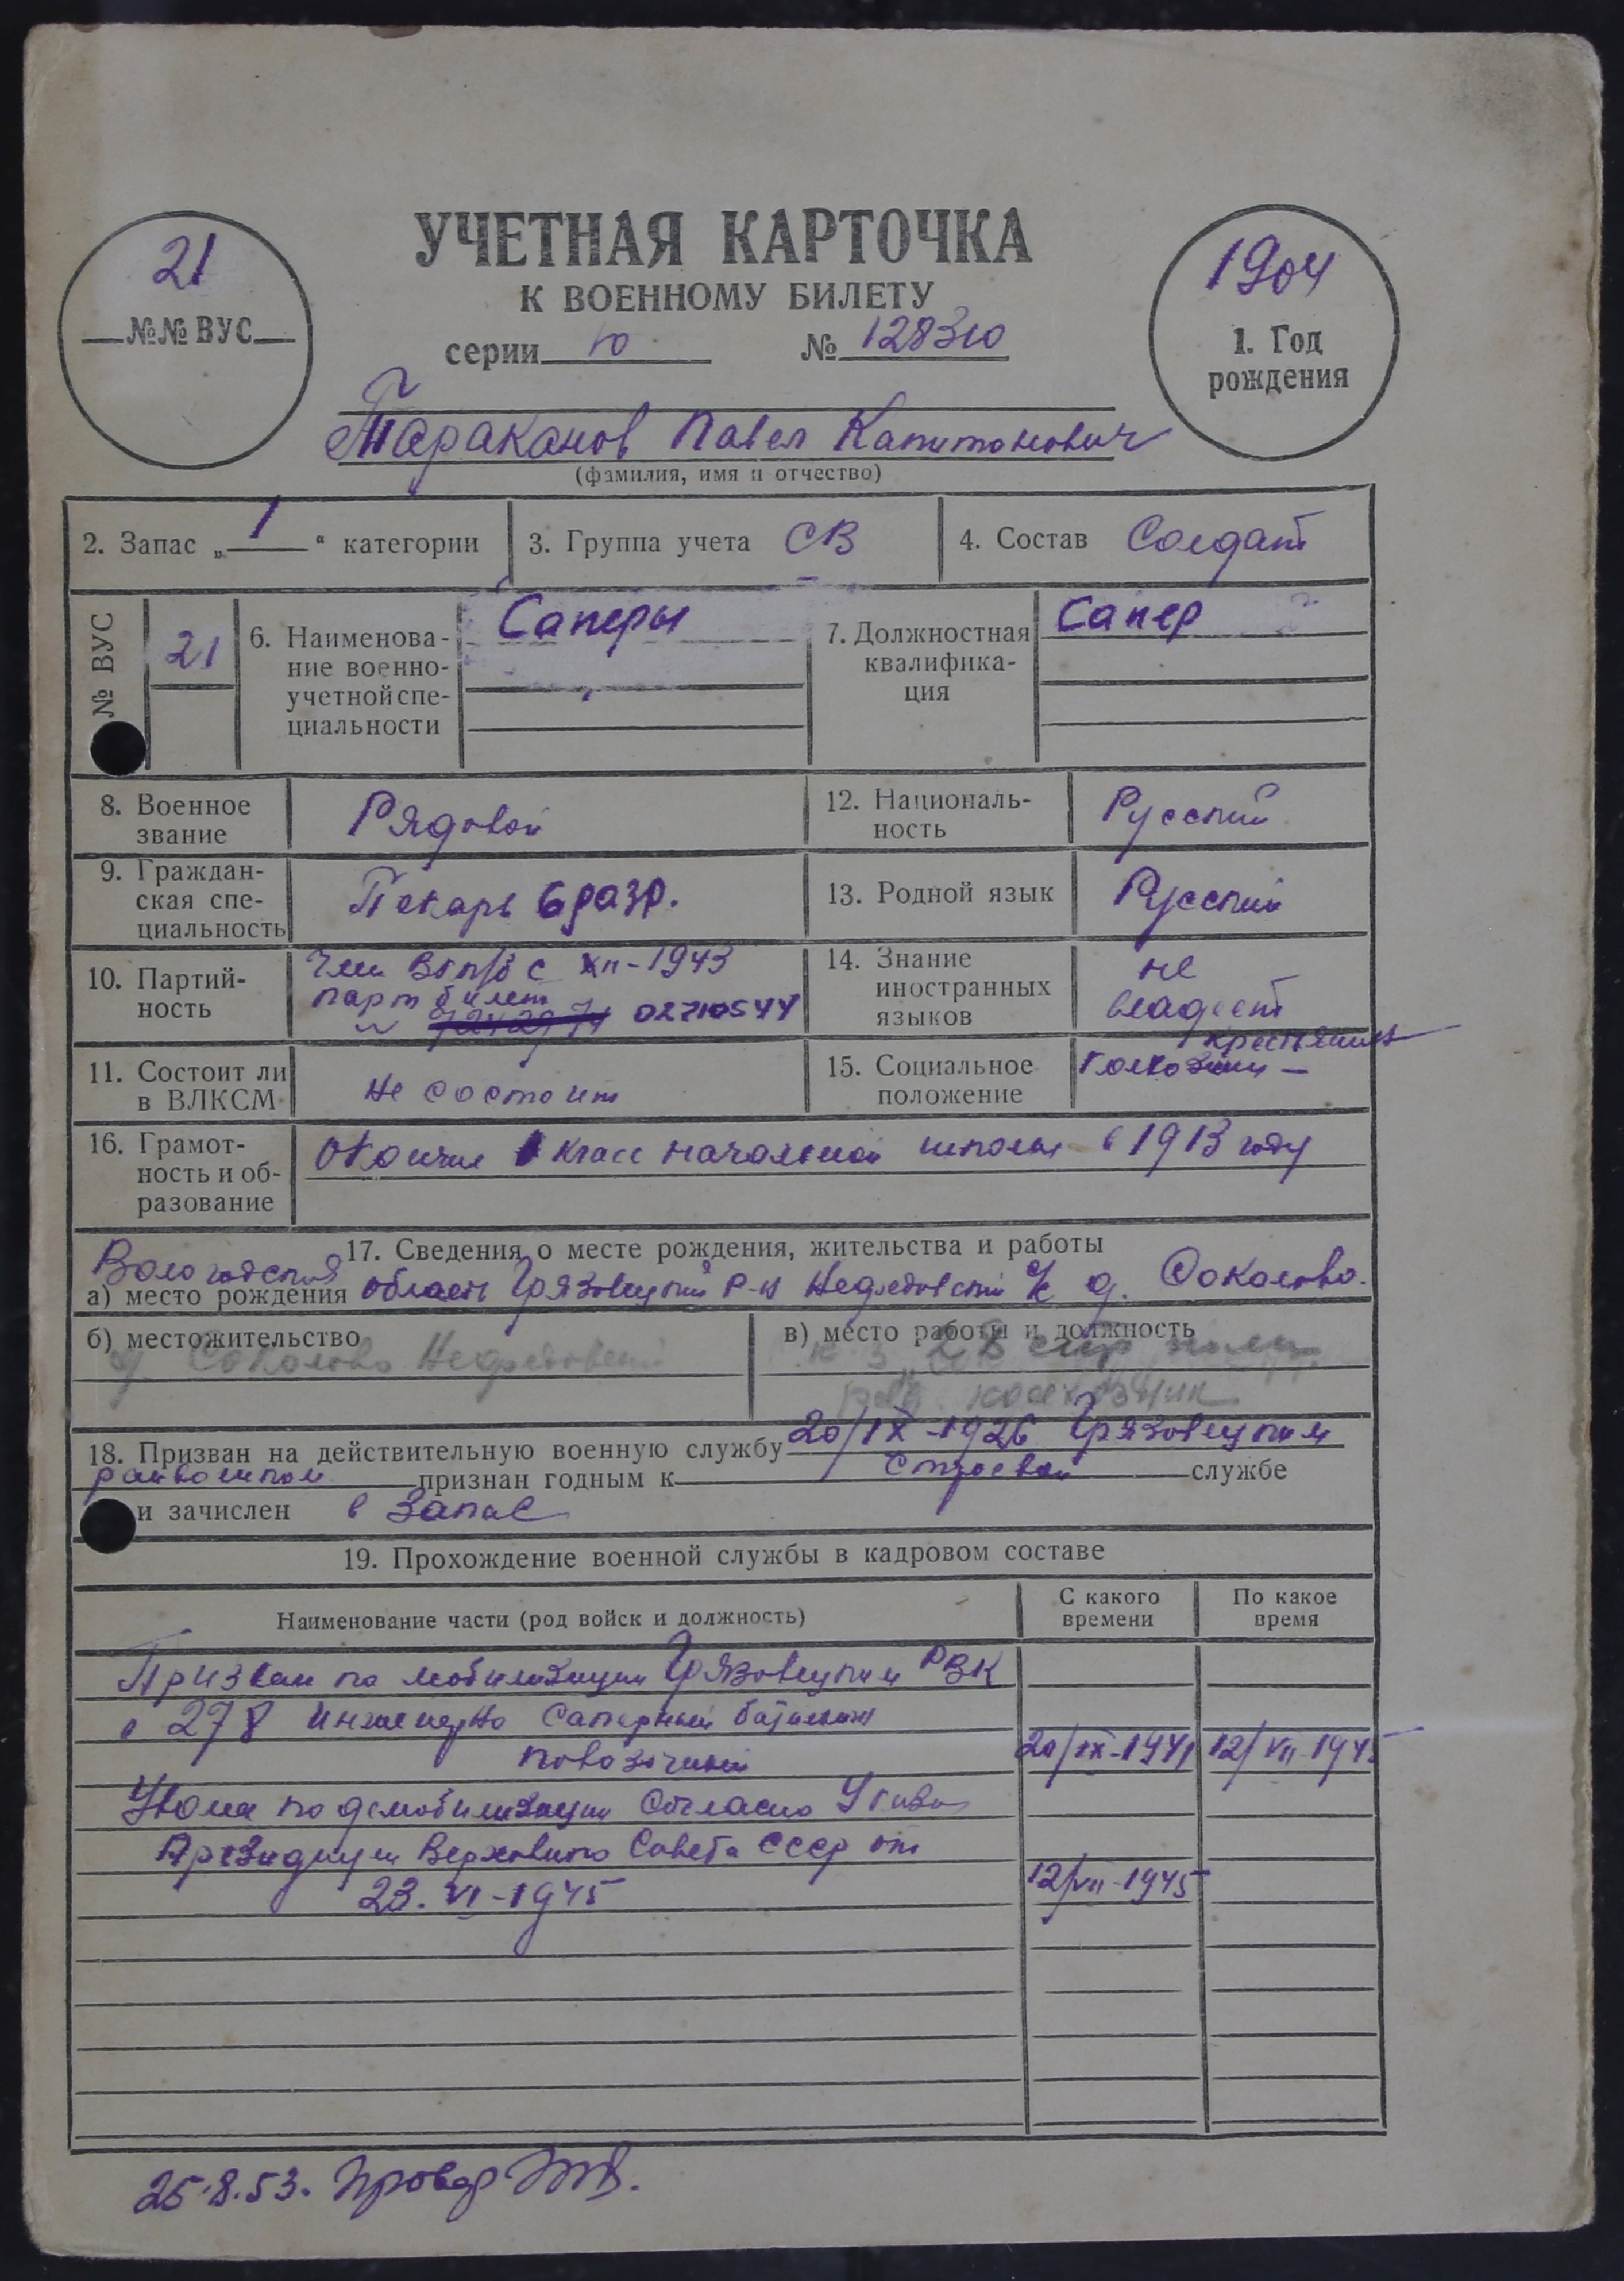 21
№№ ВУС
УЧЕТНАЯ КАРТОЧКА
К ВОЕННОМУ БИЛЕТУ
серии Ю № 128310
1904
1. Год
рождения
Тараканов Павел Капитонович
(фамилия, имя и отчество)
2. Запас „ 1 “ категории
3. Группа учета СВ
4. Состав Солдат
№ ВУС
21
6. Наименова-
ние военно-
учетной спе-
циальности
Саперы
7. Должностная
квалифика-
ция
Сапер
8. Военное
звание
Рядовой
12. Националь-
ность
Русский
9. Граждан-
ская спе-
циальность
Пекарь 6 разр.
13. Родной язык
Русский
10. Партий-
ность
Член ВКП/б с XII-1943
парт билет
02710544
14. Знание
иностранных
языков
не
владеет
11. Состоит ли
в ВЛКСМ
Не состоит
15. Социальное
положение
крестьянин
колхозник
16. Грамот-
ность и об-
разование
Окончил 1 класс начальной школы в 1913 году
17. Сведения о месте рождения, жительства и работы
Вологодская
а) место рождения область Грязовецкий р-н Нефедовский с/с д. Соколово.
б) местожительство
д. Соколово Нефедовский
в) место работы и должность
колхозник
18. Призван на действительную военную службу 20/IX-1926 Грязовецким
райвоенком признан годным к строевой службе
и зачислен в запас
19. Прохождение военной службы в кадровом составе
Наименование части (род войск и должность)
С какого
времени
По какое
время
Призван по мобилизации Грязовецким РВК
в 278 инженерно саперный батальон
повозочный 20/IX-1941 12/VII-1945
Уволен по демобилизации согласно Указа
Президиума Верховного Совета СССР от
23.VI-1945 12/VII-1945
25.8.53. Провер